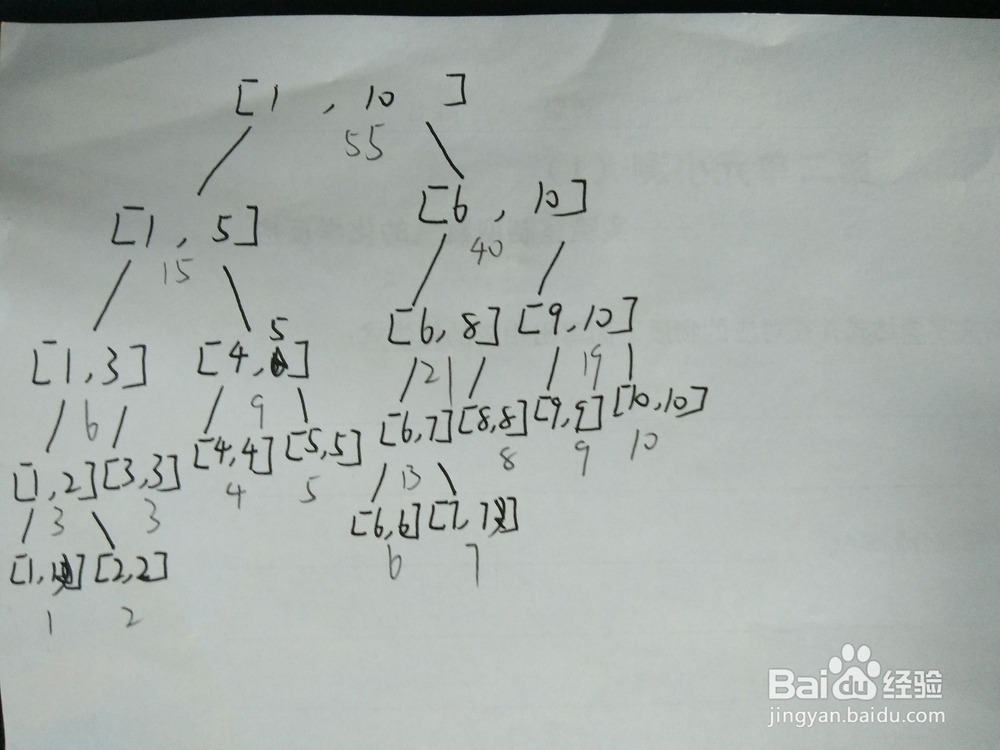 [1 , 10 ]
55
[1 , 5] [6 , 10]
15 40
[1,3] [4,5] [6,8] [9,10]
6 9 21 19
[1,2] [3,3] [4,4] [5,5] [6,7] [8,8] [9,9] [10,10]
3 3 4 5 13 8 9 10
[1,1] [2,2] [6,6] [7,7]
1 2 6 7
Baidu经验
jingyan.baidu.com